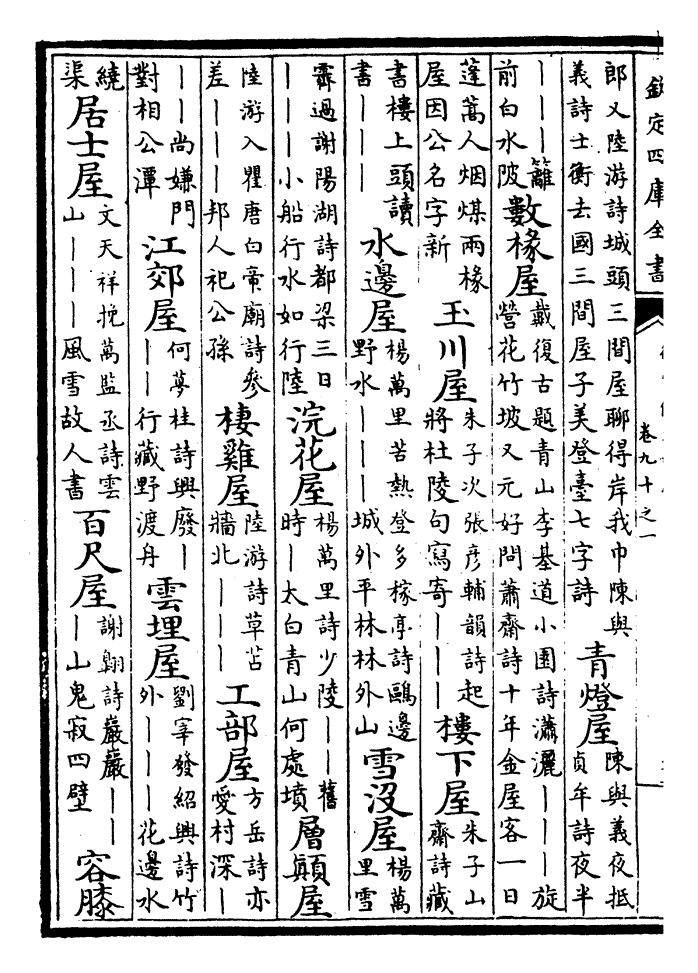 欽定四庫全書
卷九十之一
郎又陸游詩城頭三間屋聊得岸我巾陳與
義詩士衡去國三間屋子美登臺七字詩
青燈屋
陳與義夜抵
貞牟詩夜半
｜｜｜籬
前白水陂
數椽屋
戴復古題青山李基道小園詩瀟灑｜｜｜旋
營花竹坡又元好問蕭齋詩十年金屋客一日
蓬蒿人烟煤兩椽
屋因公名字新
玉川屋
朱子次張彦輔韻詩起
將杜陵句寫寄｜｜｜
樓下屋
朱子山
齋詩藏
書樓上頭讀
書｜｜｜
水邊屋
楊萬里苦熱登多稼亭詩鷗邊
野水｜｜｜城外平林林外山
雪没屋
楊萬
里雪
霽過謝陽湖詩都梁三日
｜｜｜小船行水如行陸
浣花屋
楊萬里詩少陵｜｜舊
時｜太白青山何處墳
層顛屋
陸游入瞿唐白帝廟詩參
差｜｜｜邦人祀公孫
棲雞屋
陸游詩草苫
牆北｜｜｜
工部屋
方岳詩亦
愛村深｜
｜｜尚嫌門
對相公潭
江郊屋
何夢桂詩興廢｜
｜｜行藏野渡舟
雲埋屋
劉宰發紹興詩竹
外｜｜｜花邊水
繞
渠
居士屋
文天祥挽萬監丞詩雲
山｜｜｜風雪故人書
百尺屋
謝翺詩巖巖｜｜
｜山鬼寂四壁
容膝